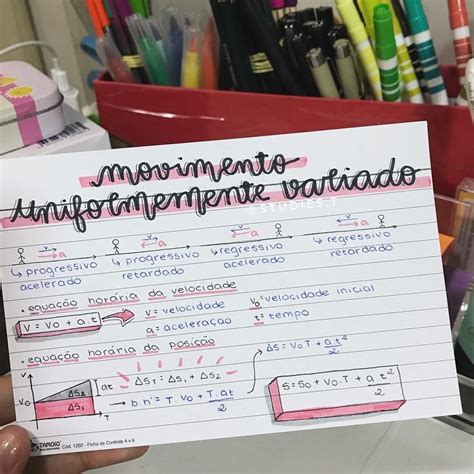 movimento
uniformemente variado
@STUDIES.T
v a v a v a v a
↳ progressivo acelerado
↳ progressivo retardado
↳ regressivo acelerado
↳ regressivo retardado
• equação horária da velocidade
V = V₀ + a t
V = velocidade
a = aceleração
V₀ = velocidade inicial
t = tempo
• equação horária da posição
V₀ ΔS₂ ΔS₁ at T
ΔST = ΔS₁ + ΔS₂
→ b.h = T. V₀ + T.at/2
ΔS = V₀T + at²/2
S = S₀ + V₀.T + at²/2
TAMOIO Cód. 1202 - Ficha de Controle 4 x 6